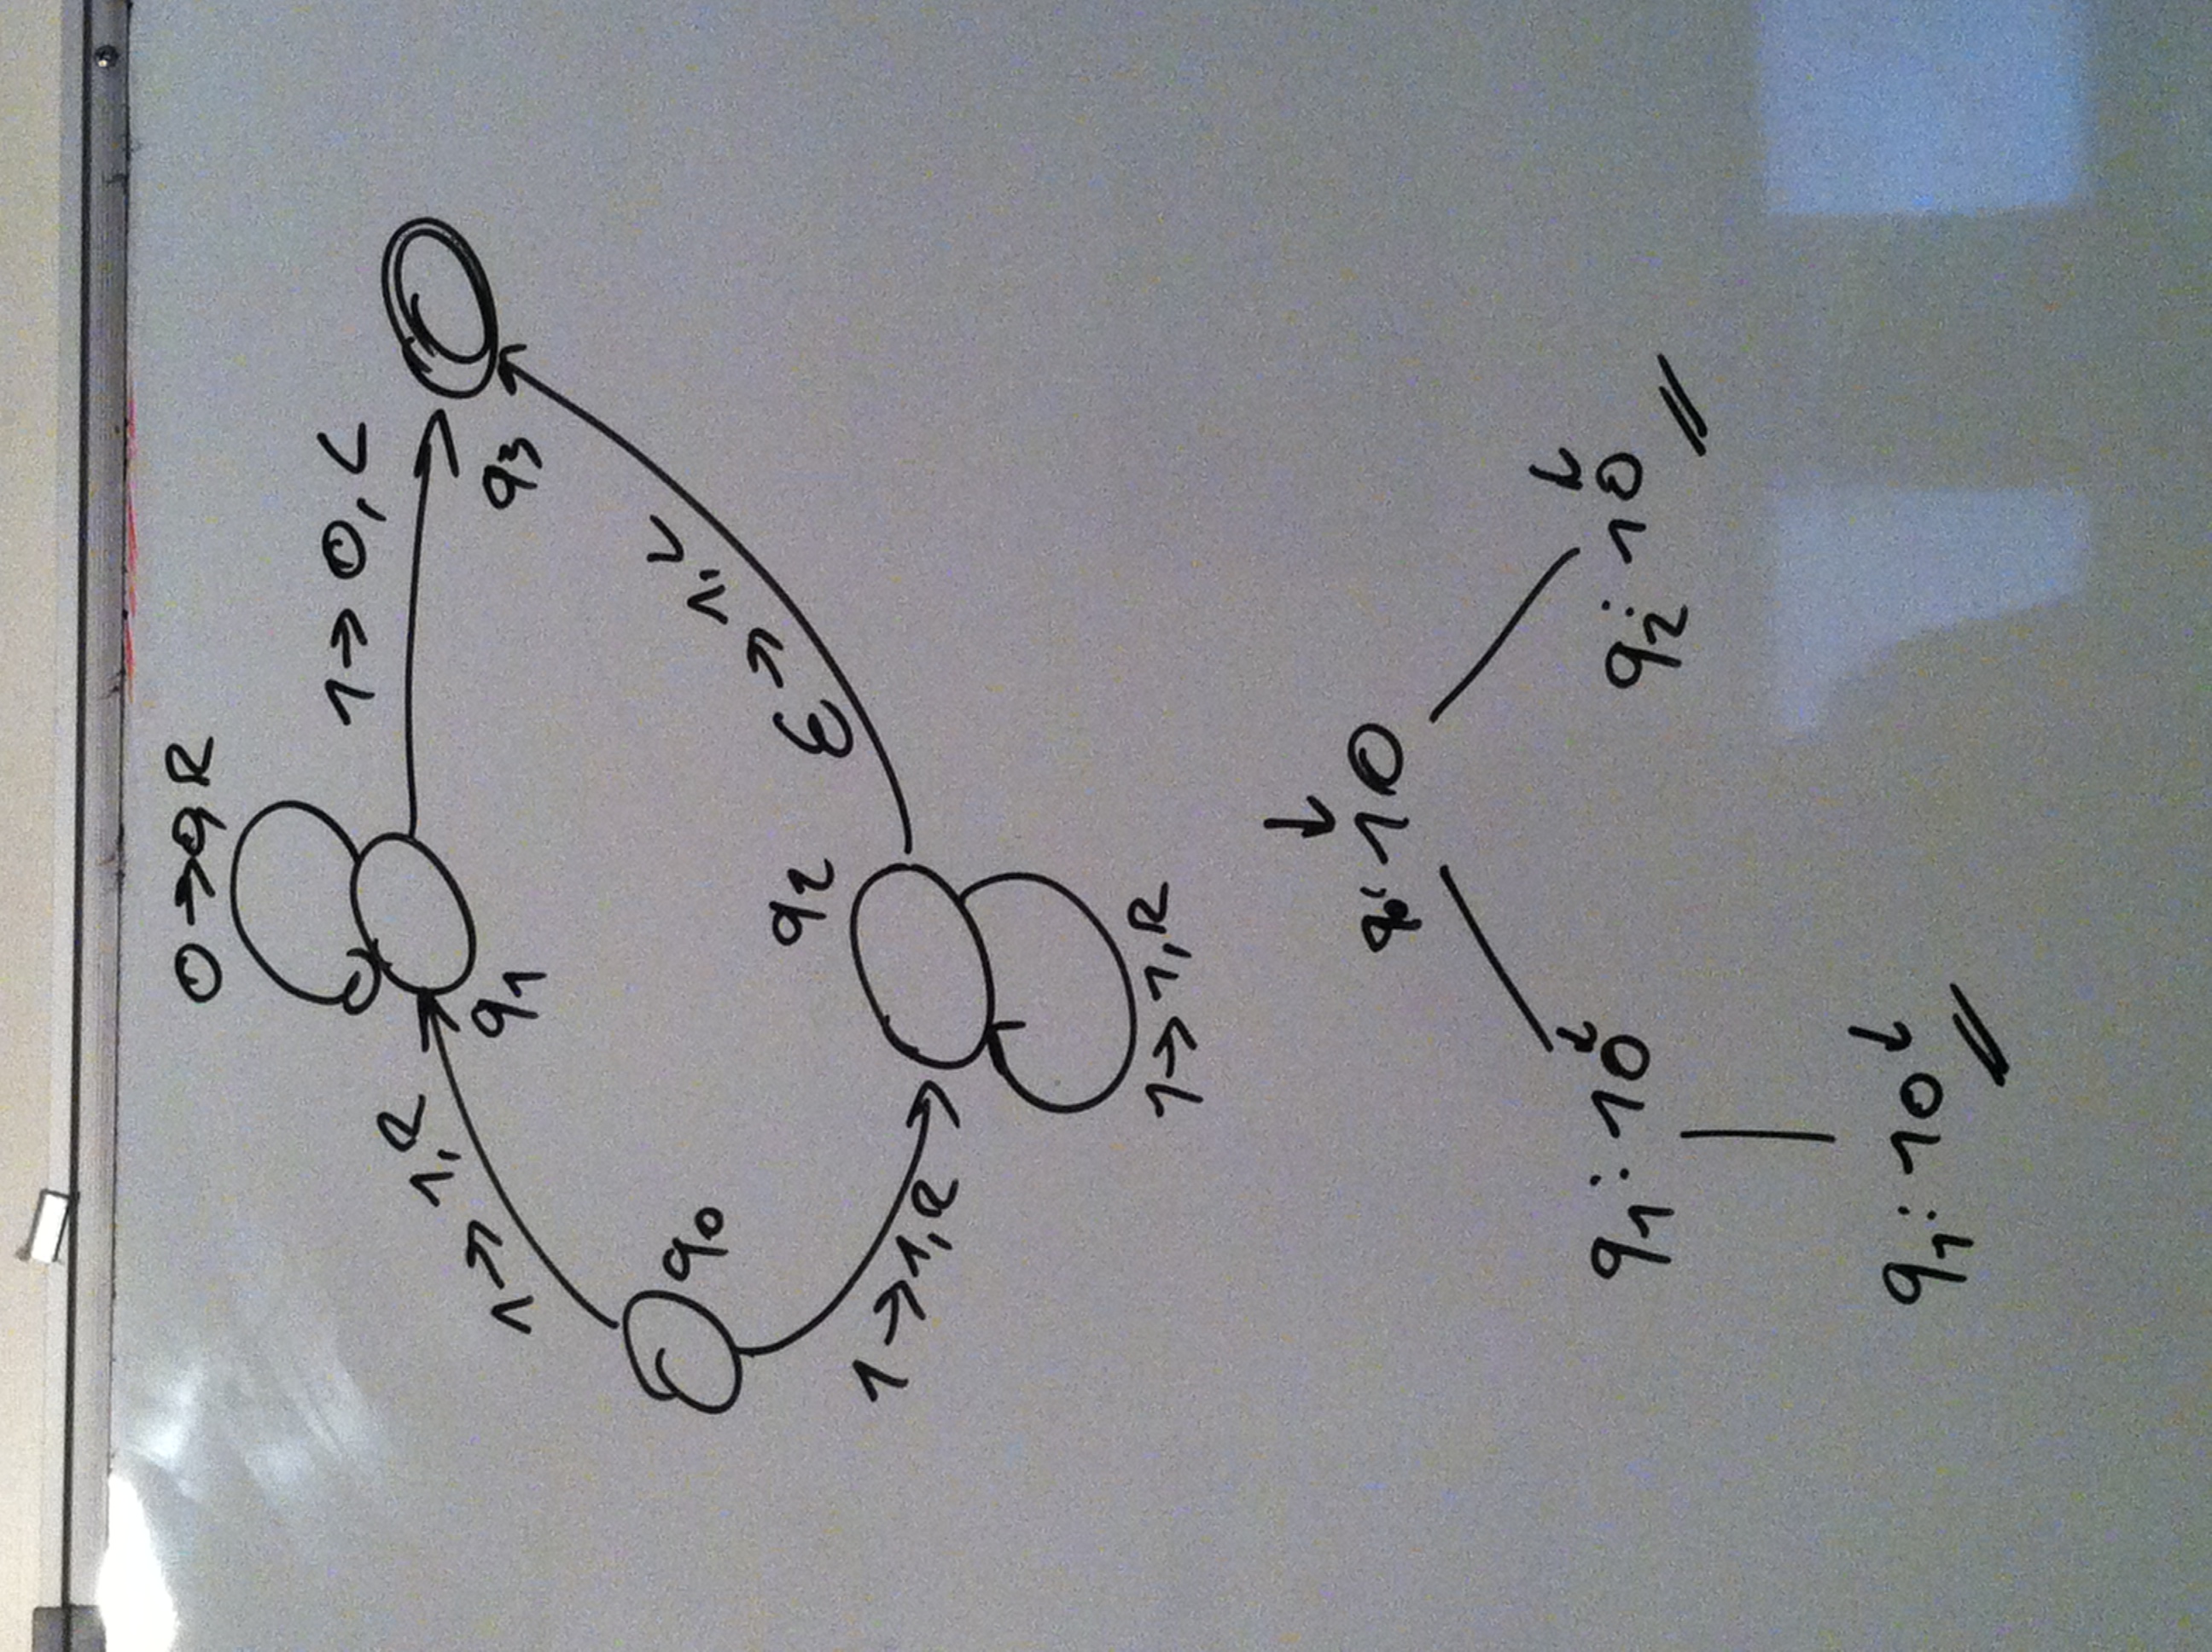 0→0,R
1→0,L
1→1,R
q1
q3
q0
1→1,R
q2
ε→1,L
1→1,R
↓
q0: 10
↓
q1: 10
↓
q2: 10
↓
q1: 10